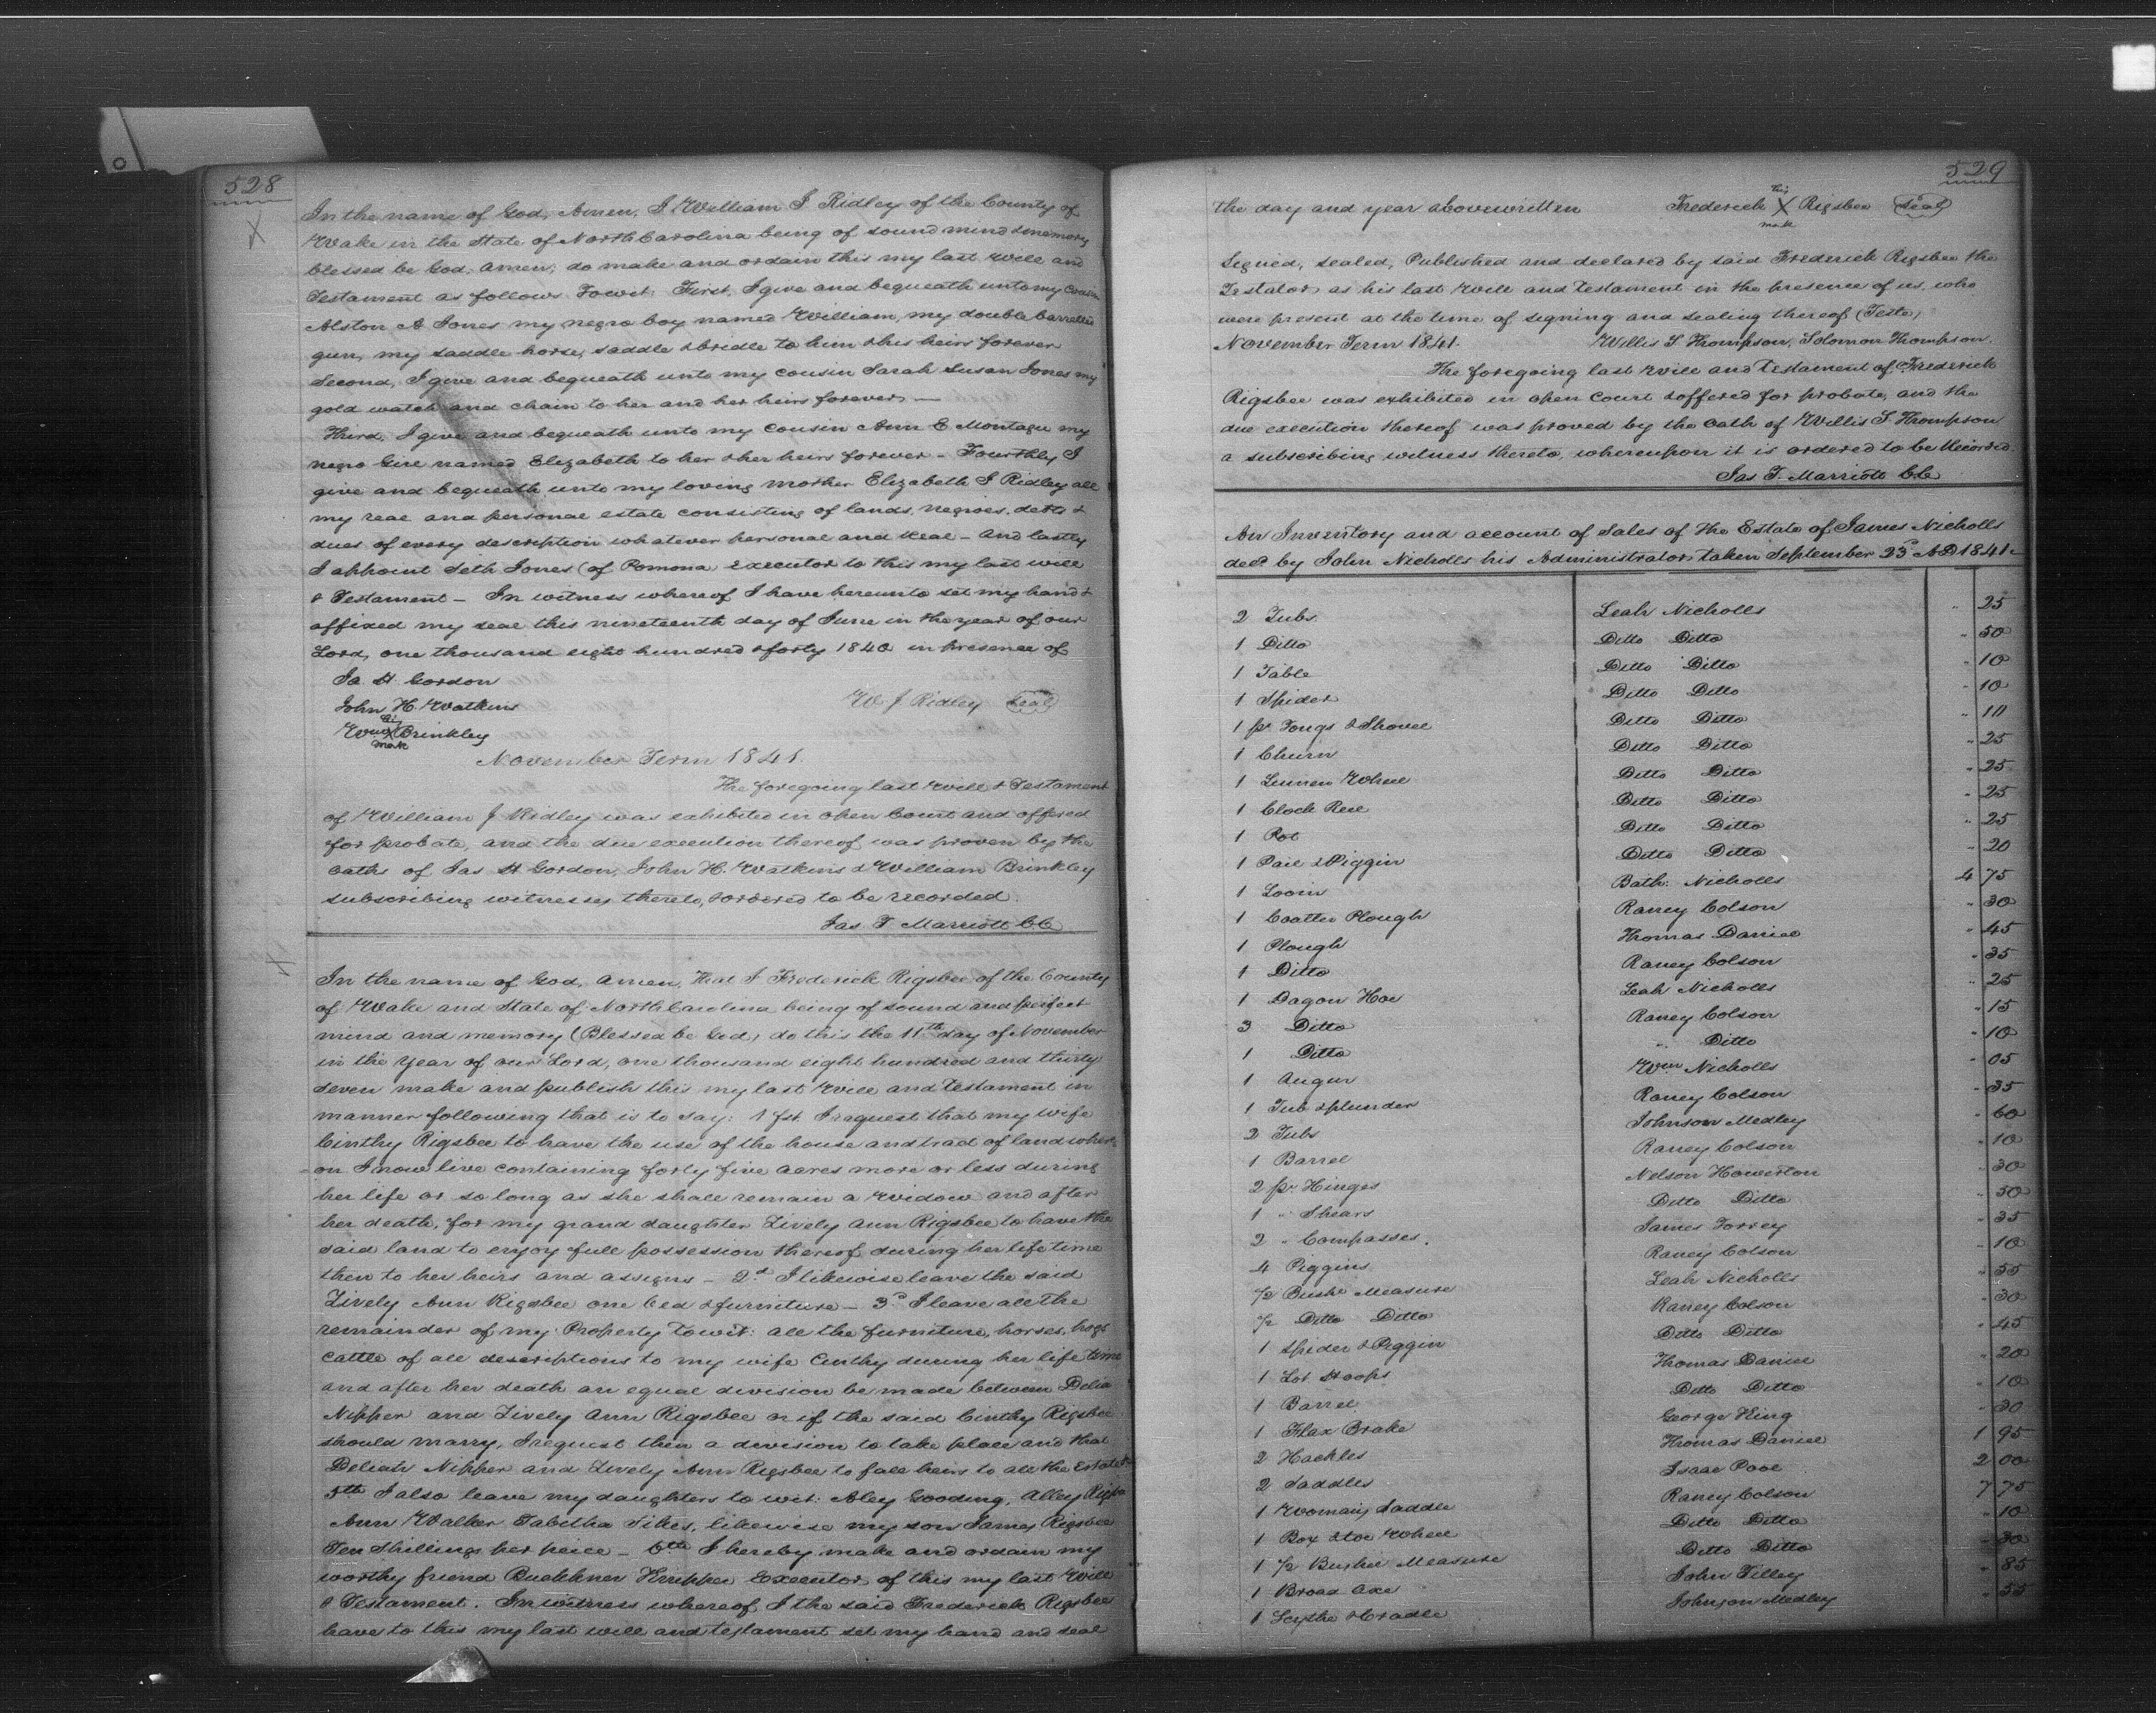 528
In the name of God, Amen, I William J. Ridley of the County of
Wake in the State of North Carolina being of sound mind & memory
blessed be God, Amen; do make and ordain this my last will and
Testament as follows Towit: First, I give and bequeath unto my Cousin
Alston A Jones my negro boy named William, my double barrelled
gun, my saddle horse, saddle & bridle to him & his heirs forever
Second, I give and bequeath unto my cousin Sarah Susan Jones my
gold watch and chain to her and her heirs forever. —
Third. I give and bequeath unto my cousin Ann E Montague my
negro Girl named Elizabeth to her & her heirs forever – Fourthly I
give and bequeath unto my loving mother Elizabeth J Ridley all
my real and personal estate consisting of lands, negroes, debts &
dues of every description whatever personal and Real – And lastly
I appoint Seth Jones (of Pomona) executor to this my last will
& Testament – In witness whereof I have hereunto set my hand &
affixed my seal this nineteenth day of June in the year of our
Lord, one thousand eight hundred & forty 1840 in presence of
Ja. H. Gordon
John H. Watkins
W J Ridley (Seal)
Wm his X mark Brinkley
November Term 1841.
The foregoing last Will & Testament
of William J Ridley was exhibited in open Court and offered
for probate, and the due execution thereof was proven by the
oaths of Jas H Gordon, John H. Watkins & William Brinkley
subscribing witnesses thereto, & ordered to be recorded.
Jas T. Marriott CC
In the name of God, Amen, that I Frederick Rigsbee of the County
of Wake and State of North Carolina being of sound and perfect
mind and memory (Blessed be God) do this the 11th day of November
in the year of our Lord, one thousand eight hundred and thirty
seven make and publish this my last Will and Testament in
manner following that is to say: 1st I request that my wife
Cinthy Rigsbee to have the use of the house and tract of land where
on I now live containing forty five acres more or less during
her life or so long as she shall remain a Widow and after
her death, for my grand daughter Lively Ann Rigsbee to have the
said land to enjoy full possession thereof during her life time
then to her heirs and assigns – 2d I likewise leave the said
Lively Ann Rigsbee one bed & furniture – 3d I leave all the
remainder of my Property Towit: all the furniture, horses, hogs
cattle of all descriptions to my wife Cinthy during her life time
and after her death an equal division be made between Delia
Nipper and Lively Ann Rigsbee or if the said Cinthy Rigsbee
should marry, I request then a division to take place and that
Deliah Nipper and Lively Ann Rigsbee to fall heirs to all the Estate
5th I also leave my daughters to wit: Aley Gooding, Alley
Ann Walker Tabitha Sikes, likewise my son James Rigsbee
Ten Shillings per peice – 6th I hereby make and ordain my
worthy friend Executor of this my last Will
& Testament. In witness whereof I the said Frederick Rigsbee
have to this my last will and testament set my hand and seal
529
the day and year abovewritten Frederick his X mark Rigsbee (Seal)
Signed, sealed, Published and declared by said Frederick Rigsbee the
Testator as his last Will and Testament in the presence of us, who
were present at the time of signing and sealing thereof (Teste)
November Term 1841. Willis S. Thompson, Solomon Thompson.
The foregoing last Will and Testament of Frederick
Rigsbee was exhibited in open Court & offered for probate, and the
due execution thereof was proved by the oath of Willis S. Thompson
a subscribing witness thereto, whereupon it is ordered to be Recorded.
Jas T. Marriott CC
An Inventory and account of Sales of the Estate of James Nicholls
decd by John Nicholls his Administrator taken September 23d AD 1841.
2 Tubs. Leah Nicholls " 25
1 Ditto Ditto Ditto " 50
1 Table Ditto Ditto " 10
1 Spider Ditto Ditto " 10
1 pr Tongs & Shovel Ditto Ditto " 10
1 Churn Ditto Ditto " 25
1 Linnen Wheel Ditto Ditto " 25
1 Clock Reel Ditto Ditto " 25
1 Pot Ditto Ditto " 25
1 Pail & Piggin Ditto Ditto " 20
1 Loom Bath: Nicholls 4 75
1 Coalter Plough Raney Colson " 30
1 Plough Thomas Daniel " 45
1 Ditto Raney Colson " 35
1 Dagon Hoe Leah Nicholls " 25
3 Ditto Raney Colson " 15
1 Ditto " Ditto " 10
1 Augur Wm Nicholls " 05
1 Tub & plunder Raney Colson " 35
2 Tubs Johnson Medley " 60
1 Barrel Raney Colson " 10
2 pr. Hinges Nelson Howerton " 30
1 " Shears Ditto Ditto " 50
2 " Compasses. James Torrey " 35
4 Piggins Raney Colson " 10
1/2 Bushl Measure Leah Nicholls " 55
1/2 Ditto Ditto Raney Colson " 30
1 Spider & Piggin Ditto Ditto " 45
1 Lot Hoops Thomas Daniel " 20
1 Barrel Ditto Ditto " 10
1 Flax Brake George King " 30
2 Hackles Thomas Daniel 1 95
2 Saddles Isaac Pool 2 00
1 Womans Saddle Raney Colson 7 75
1 Box & toe Wheel Ditto Ditto " 10
1 1/2 Bushel Measure Ditto Ditto " 30
1 Broad Axe John Tilley " 85
1 Scythe & Cradle Johnson Medley " 55